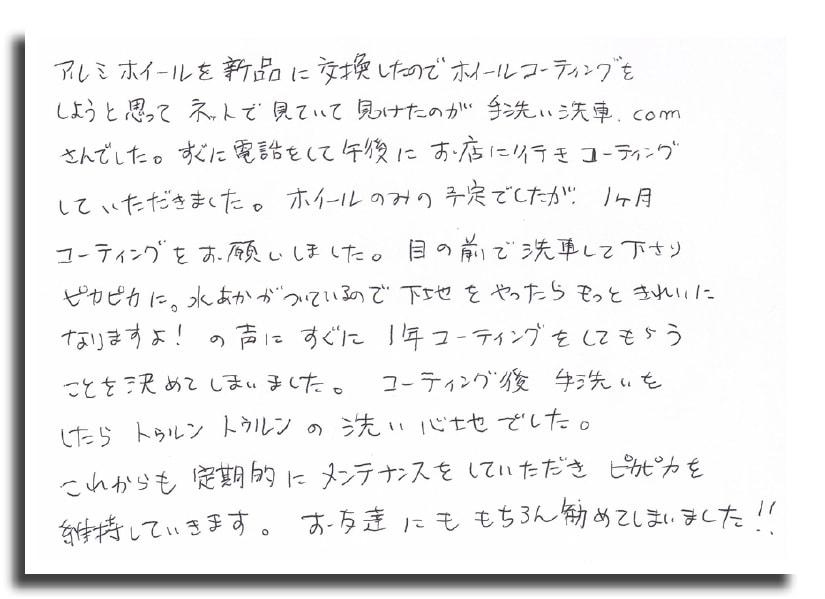 アルミホイールを新品に交換したのでホイールコーティングを
しようと思ってネットで見ていて見つけたのが手洗い洗車.com
さんでした。すぐに電話をして午後にお店に行きコーティング
していただきました。ホイールのみの予定でしたが1ヶ月
コーティングをお願いしました。目の前で洗車して下さり
ピカピカに。水あかがついているので下地をやったらもっときれいに
なりますよ!の声にすぐに1年コーティングをしてもらう
ことを決めてしまいました。コーティング後手洗いを
したらトゥルントゥルンの洗い心地でした。
これからも定期的にメンテナンスをしていただきピカピカを
維持していきます。お友達にももちろん勧めてしまいました!!